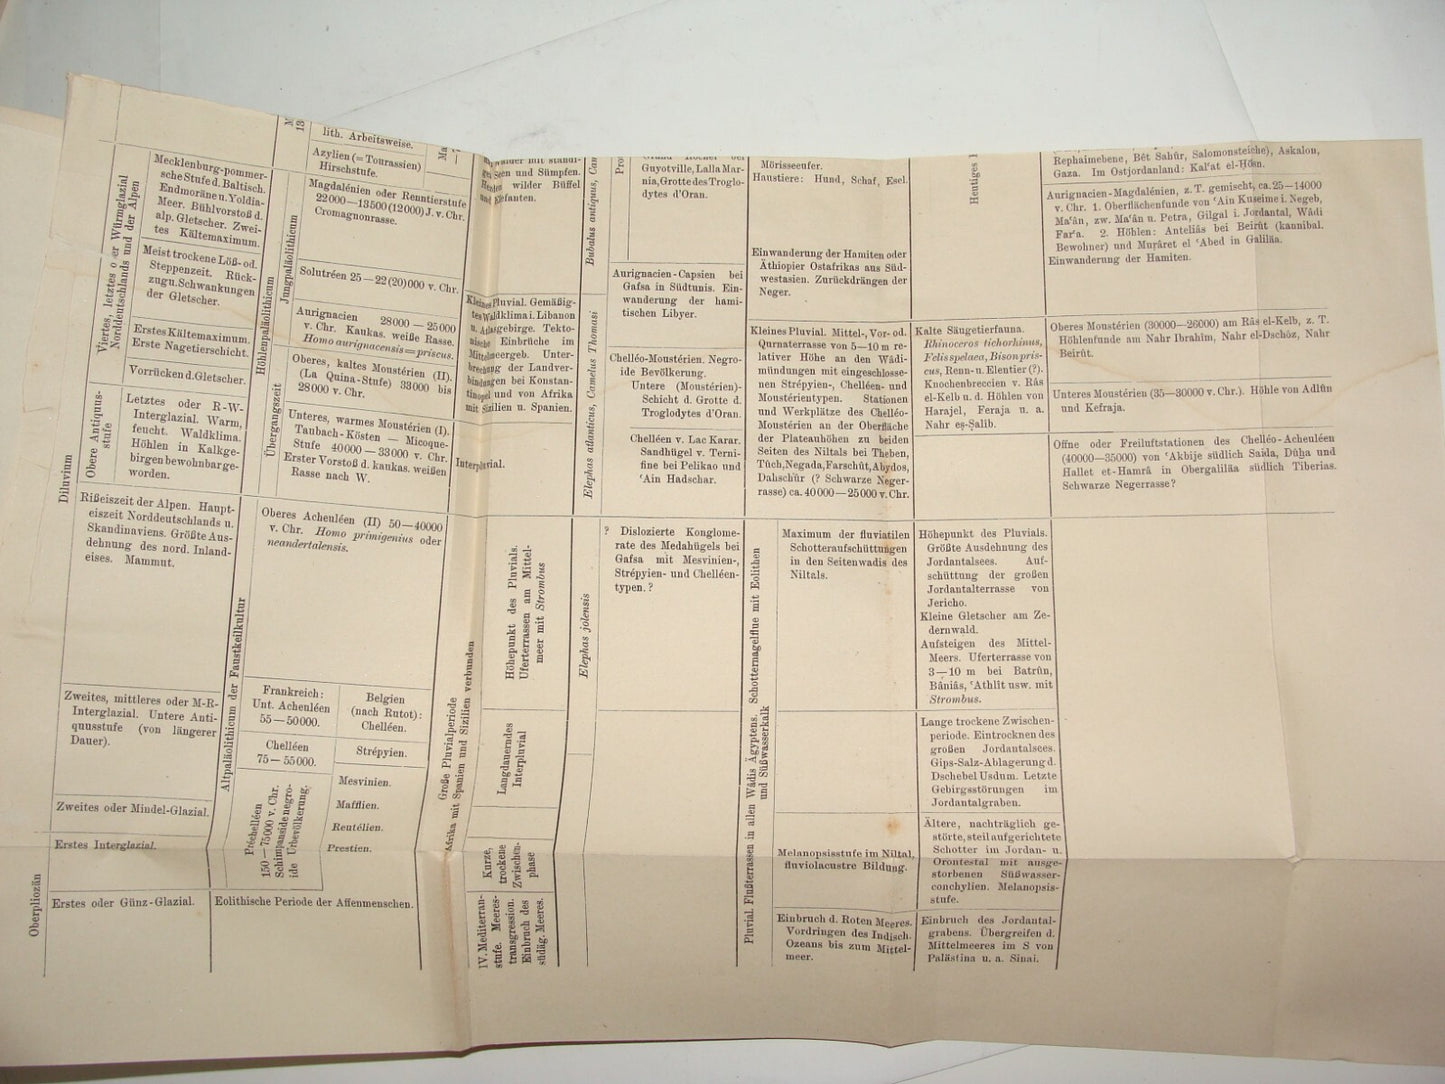 Diluvium
Oberpliozän
Viertes, letztes oder Würmglazial
Norddeutschlands und der Alpen
Mecklenburg-pommer-
sche Stufe d. Baltisch.
Endmoränen u. Yoldia-
Meer. Bühlvorstoß d.
alp. Gletscher. Zwei-
tes Kältemaximum.
Meist trockene Löß- od.
Steppenzeit. Rück-
zugu. Schwankungen
der Gletscher.
Erstes Kältemaximum.
Erste Nagetierschicht.
Vorrücken d. Gletscher.
Obere Antiquus-
stufe
Letztes oder R-W-
Interglazial. Warm,
feucht. Waldklima.
Höhlen in Kalkge-
birgen bewohnbar ge-
worden.
Rißeiszeit der Alpen. Haupt-
eiszeit Norddeutschlands u.
Skandinaviens. Größte Aus-
dehnung des nord. Inland-
eises. Mammut.
Zweites, mittleres oder M-R-
Interglazial. Untere Anti-
quusstufe (von längerer
Dauer).
Zweites oder Mindel-Glazial.
Erstes Interglazial.
Erstes oder Günz-Glazial.
Höhlenpaläolithicum
Jungpaläolithicum
Übergangszeit
Altpaläolithicum der Faustkeilkultur
lith. Arbeitsweise.
Azylien (= Tourassien)
Hirschstufe.
Magdalénien oder Renntierstufe
22000—13500 (12000) J. v. Chr.
Cromagnonrasse.
Solutréen 25—22 (20) 000 v. Chr.
Aurignacien 28000—25000
v. Chr. Kaukas. weiße Rasse.
Homo aurignacensis = priscus.
Oberes, kaltes Moustérien (II).
(La Quina-Stufe) 33000 bis
28000 v. Chr.
Unteres, warmes Moustérien (I).
Taubach-Kösten — Micoque-
Stufe 40000—33000 v. Chr.
Erster Vorstoß d. kaukas. weißen
Rasse nach W.
Oberes Acheuléen (II) 50—40000
v. Chr. Homo primigenius oder
neandertalensis.
Frankreich:
Unt. Acheuléen
55—50000.
Chelléen
75—55000.
Préchelléen
150—75000 v. Chr.
Schimpanside negro-
ide Urbevölkerung.
Belgien
(nach Rutot):
Chelléen.
Strépyien.
Mesvinien.
Mafflien.
Reutélien.
Prestien.
Eolithische Periode der Affenmenschen.
Große Pluvialperiode
Afrika mit Spanien und Sizilien verbunden
wälder mit ständi-
gen Seen und Sümpfen.
Herden wilder Büffel
und Elefanten.
Kleines Pluvial. Gemäßig-
tes Waldklima i. Libanon
u. Atlasgebirge. Tekto-
nische Einbrüche im
Mittelmeergeb. Unter-
brechung der Landver-
bindungen bei Konstan-
tinopel und von Afrika
mit Sizilien u. Spanien.
Interpluvial.
Höhepunkt des Pluvials.
Uferterrassen am Mittel-
meer mit Strombus
Langdauerndes
Interpluvial
Kurze,
trockene
Zwischen-
phase
IV. Mediterran-
stufe. Meeres-
transgression.
Einbruch des
südäg. Meeres.
Bubalus antiquus, Cam
Elephas atlanticus, Camelus Thomasi
Elephas jolensis
Guyotville, Lalla Mar-
nia, Grotte des Troglo-
dytes d'Oran.
Aurignacien-Capsien bei
Gafsa in Südtunis. Ein-
wanderung der hami-
tischen Libyer.
Chelléo-Moustérien. Negro-
ide Bevölkerung.
Untere (Moustérien)-
Schicht d. Grotte d.
Troglodytes d'Oran.
Chelléen v. Lac Karar.
Sandhügel v. Terni-
fine bei Pelikao und
ʿAin Hadschar.
? Dislozierte Konglome-
rate des Medahügels bei
Gafsa mit Mesvinien-,
Strépyien- und Chelléen-
typen. ?
Pluvial. Flußterrassen in allen Wâdis Ägyptens. Schotternagelflue mit Eolithen
und Süßwasserkalk
Mörisseeufer.
Haustiere: Hund, Schaf, Esel.
Einwanderung der Hamiten oder
Äthiopier Ostafrikas aus Süd-
westasien. Zurückdrängen der
Neger.
Kleines Pluvial. Mittel-, Vor- od.
Qurnaterrasse von 5—10 m re-
lativer Höhe an den Wâdi-
mündungen mit eingeschlosse-
nen Strépyien-, Chelléen- und
Moustérientypen. Stationen
und Werkplätze des Chelléo-
Moustérien an der Oberfläche
der Plateauhöhen zu beiden
Seiten des Niltals bei Theben,
Tûch, Negada, Farschût, Abydos,
Dahschûr (? Schwarze Neger-
rasse) ca. 40000—25000 v. Chr.
Maximum der fluviatilen
Schotteraufschüttungen
in den Seitenwadis des
Niltals.
Melanopsisstufe im Niltal,
fluviolacustre Bildung.
Einbruch d. Roten Meeres.
Vordringen des Indisch.
Ozeans bis zum Mittel-
meer.
Heutiges
Kalte Säugetierfauna.
Rhinoceros tichorhinus,
Felis spelaea, Bison pris-
cus, Renn- u. Elentier (?).
Knochenbreccien v. Râs
el-Kelb u. d. Höhlen von
Harajel, Feraja u. a.
Nahr eṣ-Ṣalib.
Höhepunkt des Pluvials.
Größte Ausdehnung des
Jordantalsees. Auf-
schüttung der großen
Jordantalterrasse von
Jericho.
Kleine Gletscher am Ze-
dernwald.
Aufsteigen des Mittel-
Meers. Uferterrasse von
3—10 m bei Batrûn,
Bâniâs, ʿAthlît usw. mit
Strombus.
Lange trockene Zwischen-
periode. Eintrocknen des
großen Jordantalsees.
Gips-Salz-Ablagerung d.
Dschebel Usdum. Letzte
Gebirgsstörungen im
Jordantalgraben.
Ältere, nachträglich ge-
störte, steil aufgerichtete
Schotter im Jordan- u.
Orontestal mit ausge-
storbenen Süßwasser-
conchylien. Melanopsis-
stufe.
Einbruch des Jordantal-
grabens. Übergreifen d.
Mittelmeeres im S von
Palästina u. a. Sinai.
Rephaimebene, Bêt Sahûr, Salomonsteiche), Askalon,
Gaza. Im Ostjordanland: Kalʿat el-Ḥöṣn.
Aurignacien-Magdalénien, z. T. gemischt, ca. 25—14000
v. Chr. 1. Oberflächenfunde von ʿAin Kuseime i. Negeb,
Maʿân, zw. Maʿân u. Petra, Gilgal i. Jordantal, Wâdi
Farʿa. 2. Höhlen: Anteliâs bei Beirût (kannibal.
Bewohner) und Murâret el ʿAbed in Galiläa.
Einwanderung der Hamiten.
Oberes Moustérien (30000—26000) am Râs el-Kelb, z. T.
Höhlenfunde am Nahr Ibrahim, Nahr el-Dschôz, Nahr
Beirût.
Unteres Moustérien (35—30000 v. Chr.). Höhle von Adlûn
und Kefraja.
Offne oder Freiluftstationen des Chelléo-Acheuléen
(40000—35000) von ʿAkbije südlich Saida, Dûḥa und
Hallet et-Hamrâ in Obergaliläa südlich Tiberias.
Schwarze Negerrasse?